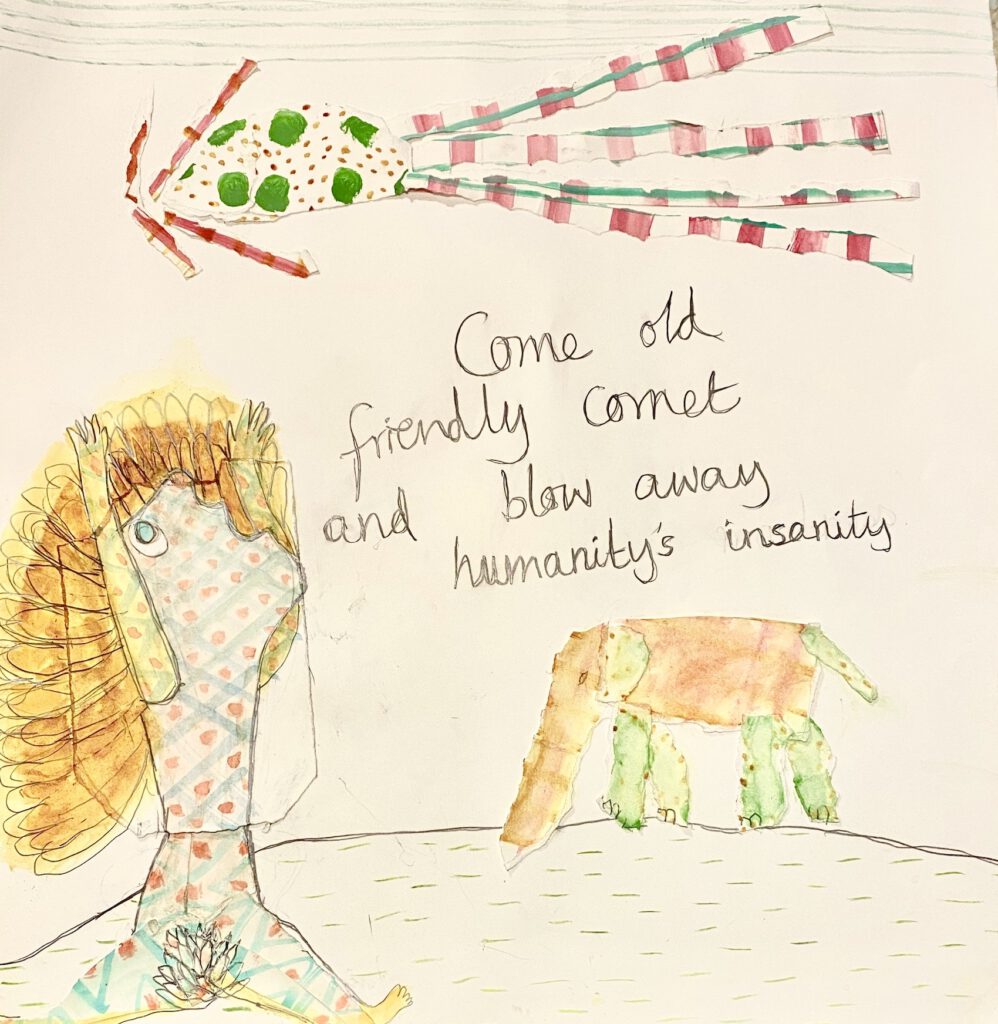 Come old
friendly comet
and blow away
humanity's insanity